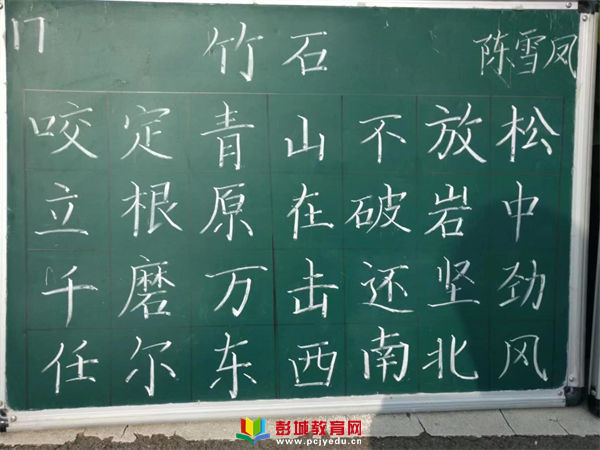 17 竹石 陈雪凤
咬定青山不放松
立根原在破岩中
千磨万击还坚劲
任尔东西南北风
彭城教育网
www.pcjyedu.cn